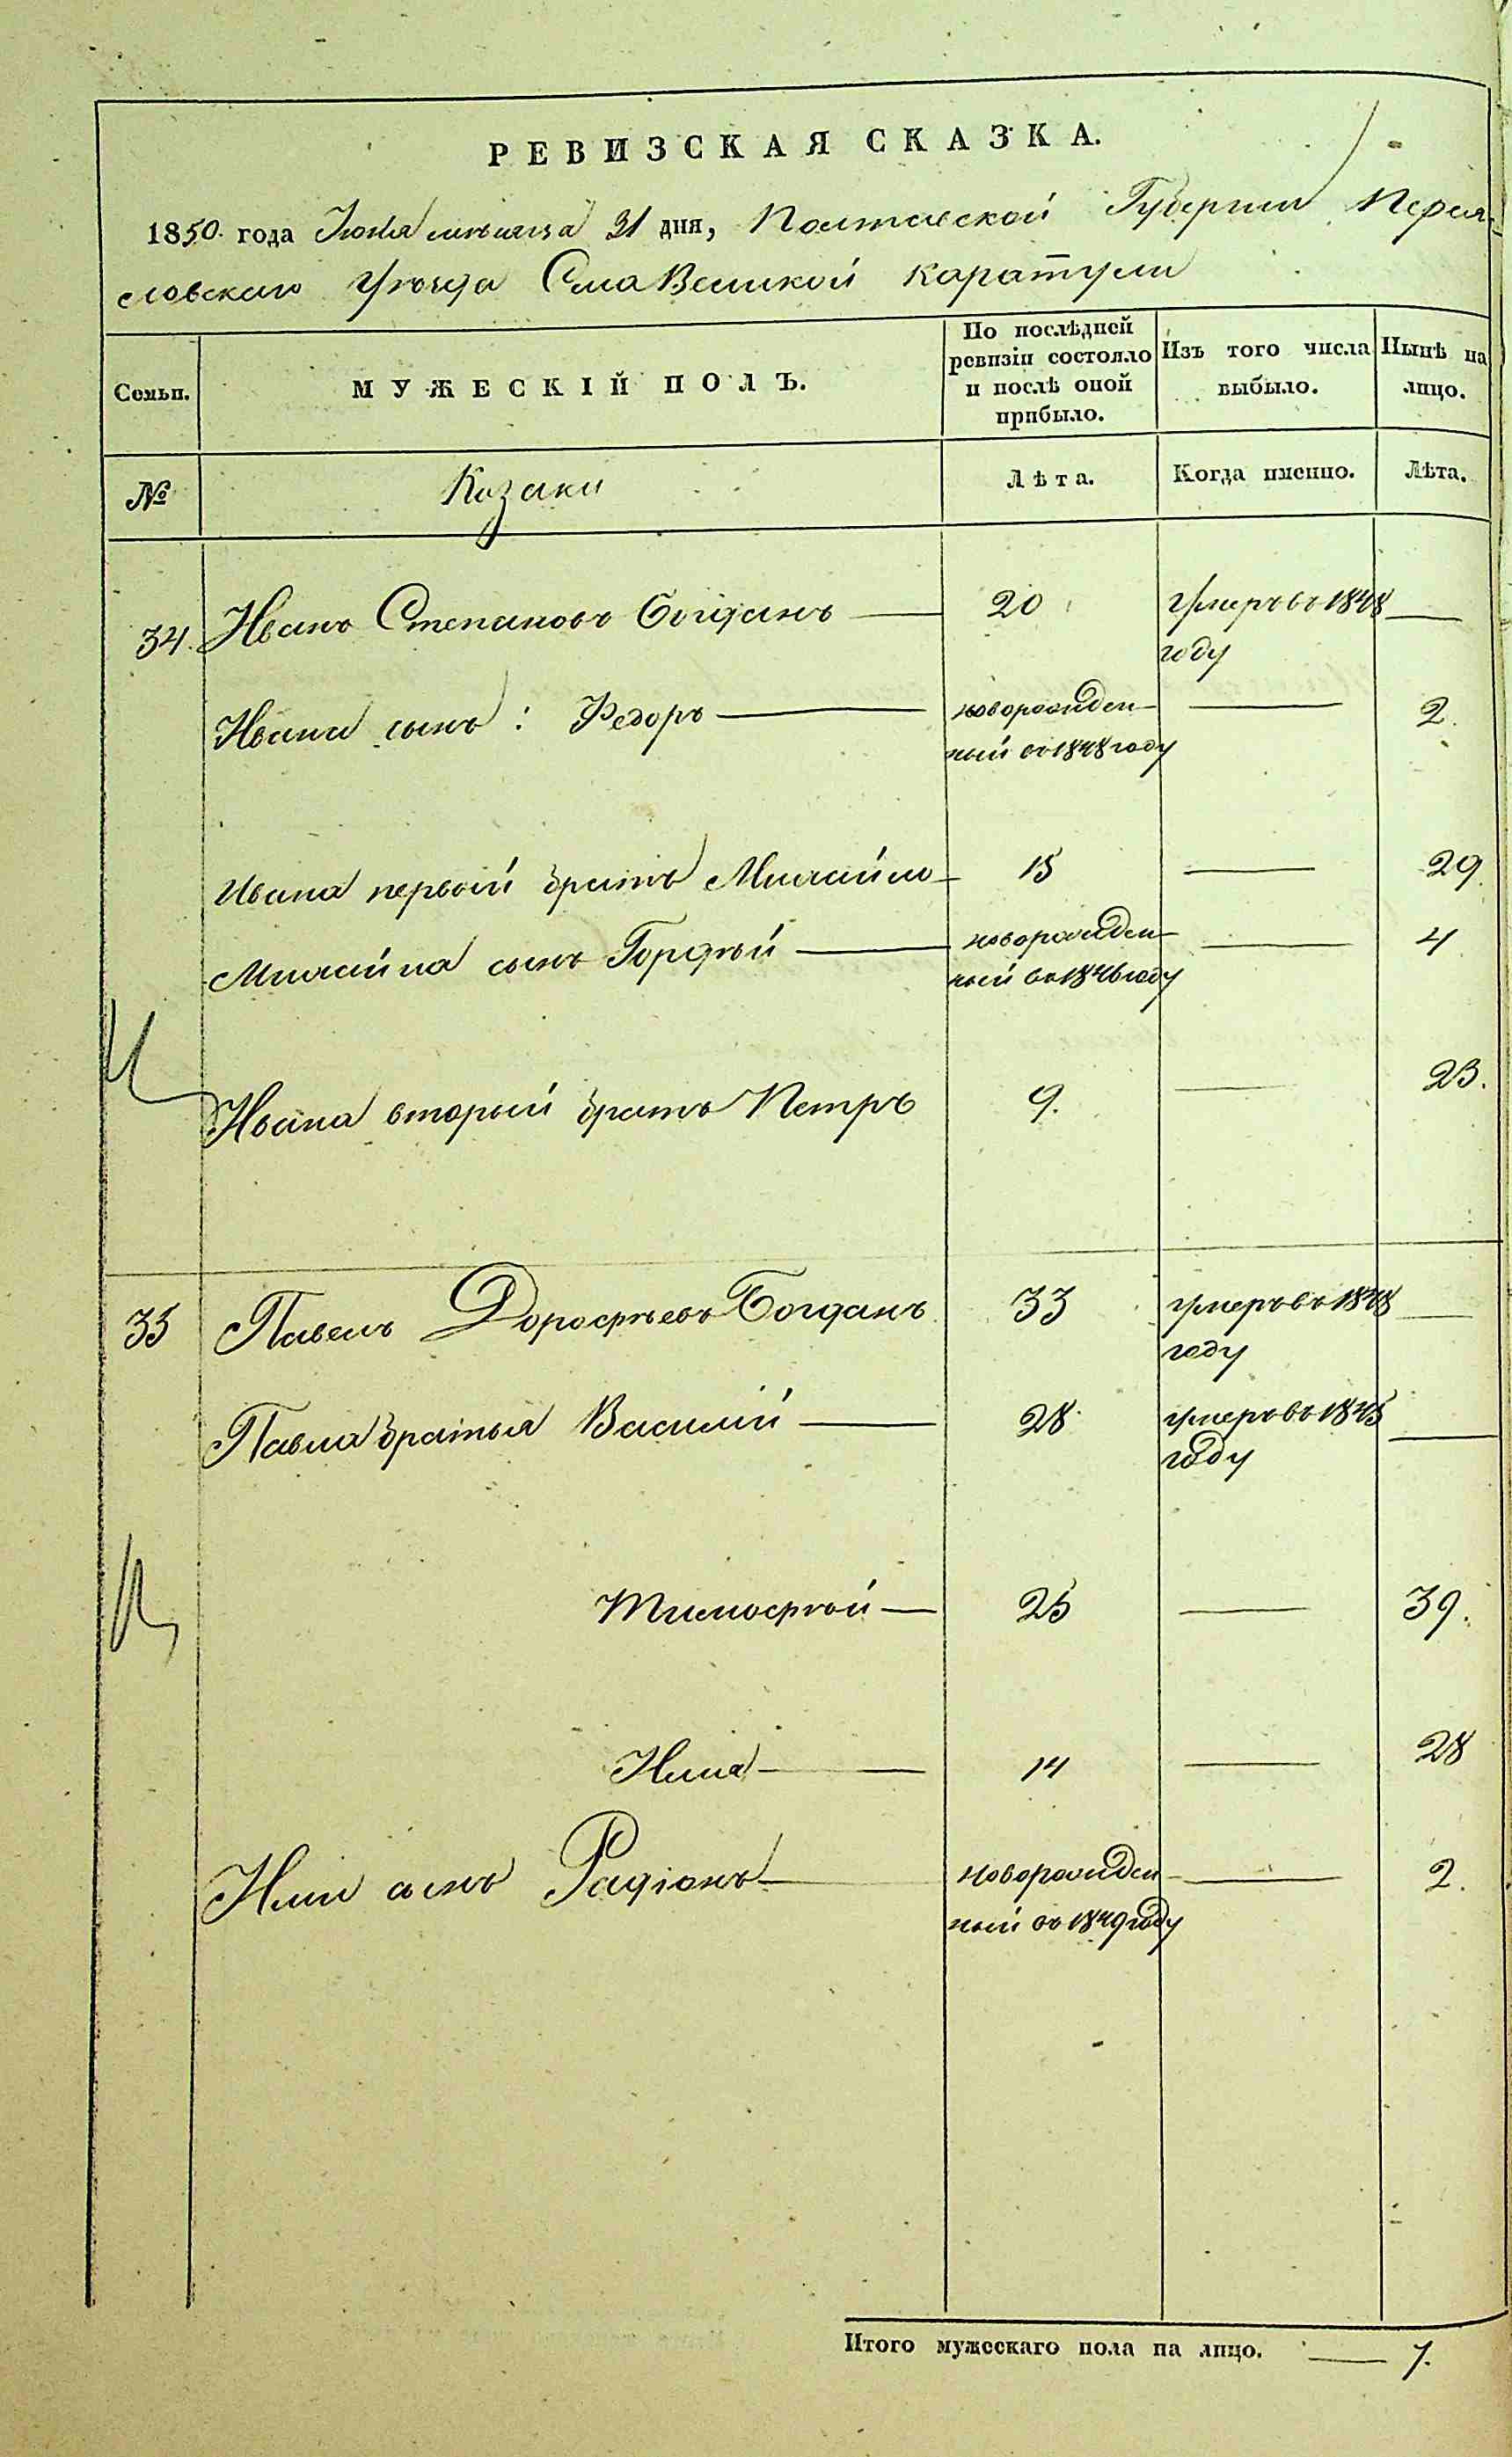 РЕВИЗСКАЯ СКАЗКА.
1850. года Іюля мѣсяца 31 дня, Полтавской Губерніи Перея-
словскаго Уѣзда Села Великой Каратули
Семьи. МУЖЕСКІЙ ПОЛЪ. По послѣдней ревизіи состояло и послѣ оной прибыло. Изъ того числа выбыло. Нынѣ на лицо.
№ Козаки Лѣта. Когда именно. Лѣта.
34. Иванъ Степановъ Богданъ — 20 умеръ въ 1848 году —
Ивана сынъ: Федоръ — новорожденный въ 1848 году — 2.
Ивана первый братъ Михайло — 15 — 29.
Михайла сынъ Гордѣй — новорожденный въ 1846 году — 4
Ивана вторый братъ Петръ 9. — 23.
35 Павелъ Дорофѣевъ Богданъ 33 умеръ въ 1848 году —
Павла братья Василій — 28 умеръ въ 1845 году —
Тимофѣй — 25 — 39.
Илья — 14 — 28
Ильи сынъ Радіонъ — новорожденный въ 1849 году — 2.
Итого мужескаго пола на лицо. — 7.